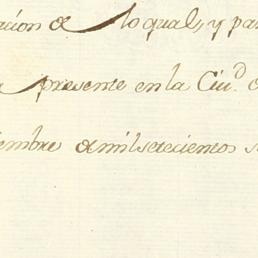 acion de lo qual, y par
presente en la Ciu.d d
iembre de mil setecientos s